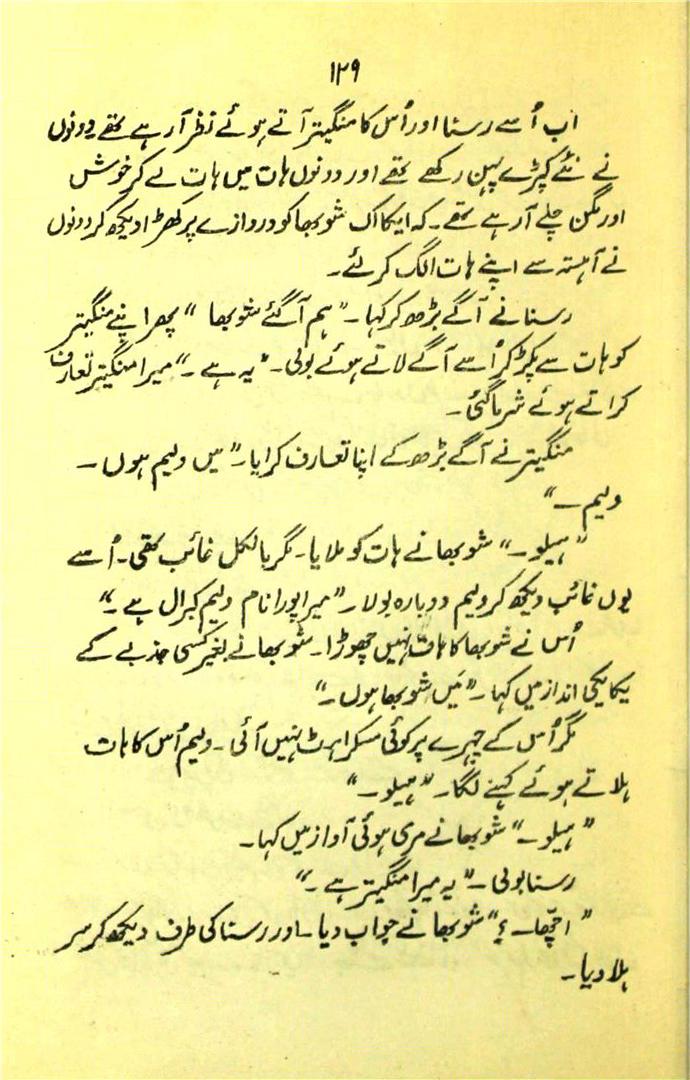 ۱۲۹
اب اُسے رسنا اور اُس کا منگیتر آتے ہوئے نظر آ رہے تھے دونوں
نے نئے کپڑے پہن رکھے تھے اور دونوں ہات میں ہات لے کر خوش
اور مگن چلے آ رہے تھے۔ کہ ایکا اک شوبھا کو دروازے پر کھڑا دیکھ کر دونوں
نے آہستہ سے اپنے ہات الگ کر لئے۔
رسنا نے آگے بڑھ کر کہا۔ "ہم آ گئے شوبھا" پھر اپنے منگیتر
کو ہات سے پکڑ کر اُسے آگے لاتے ہوئے بولی۔ "یہ ہے۔" میرا منگیتر تعارف
کراتے ہوئے شرما گئی۔
منگیتر نے آگے بڑھ کے اپنا تعارف کرایا۔ "میں ولیم ہوں ۔
ولیم ۔"
"ہیلو ۔" شوبھا نے ہات کو ملایا۔ مگر بالکل غائب تھی۔ اُسے
یوں غائب دیکھ کر ولیم دوبارہ بولا ۔ "میرا پورا نام ولیم کبرال ہے ۔"
اُس نے شوبھا کا ہات نہیں چھوڑا۔ شوبھا نے بغیر کسی جذبے کے
یکایکی انداز میں کہا ۔ "مَیں شوبھا ہوں ۔"
مگر اُس کے چہرے پر کوئی مسکراہٹ نہیں آئی ۔ ولیم اُس کا ہات
ہلاتے ہوئے کہنے لگا۔ "ہیلو ۔"
"ہیلو ۔" شوبھا نے مری ہوئی آواز میں کہا۔
رسنا بولی ۔ "یہ میرا منگیتر ہے ۔"
"اچّھا۔ ؟" شوبھا نے جواب دیا ۔ اور رسنا کی طرف دیکھ کر سر
ہلا دیا ۔